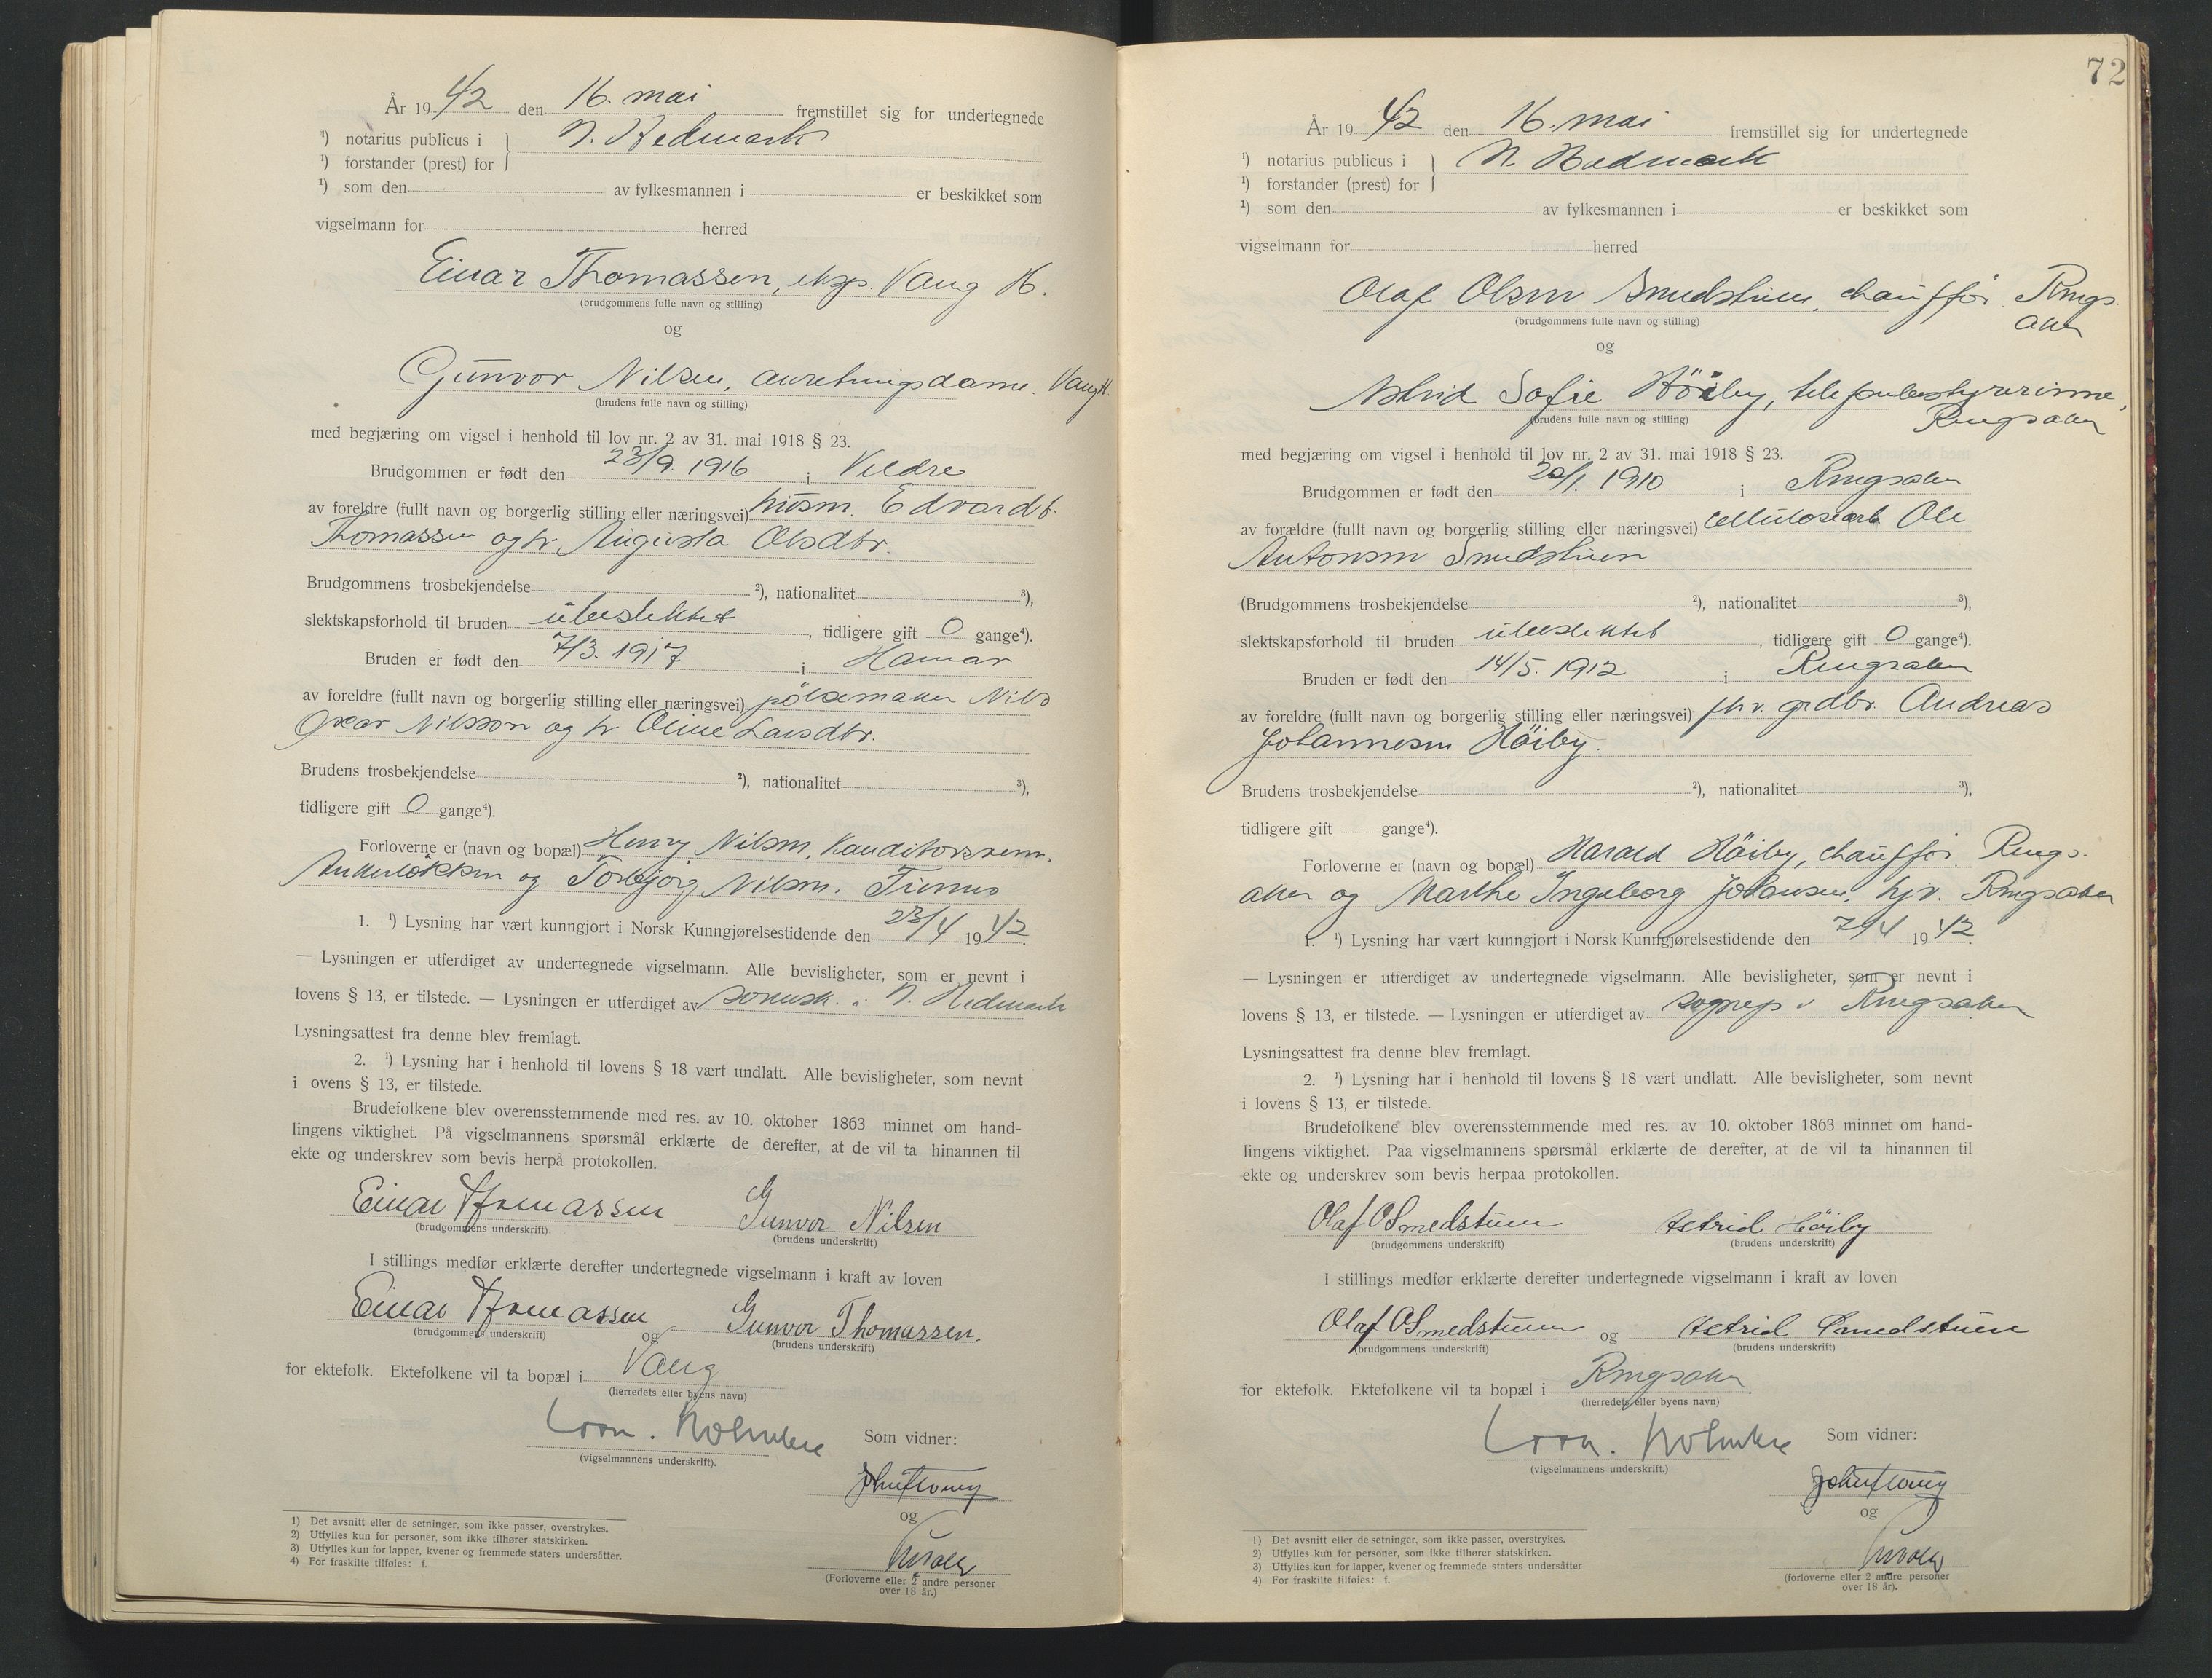 År 1942 den 16. mai fremstillet sig for undertegnede
¹) notarius publicus i N. Hedmark
¹) forstander (prest) for
¹) som den av fylkesmannen i er beskikket som
vigselmann for herred
Einar Thomassen, eksp. Vang H.
(brudgommens fulle navn og stilling)
og
Gunvor Nilsen, anretningsdame. Vang H.
(brudens fulle navn og stilling)
med begjæring om vigsel i henhold til lov nr. 2 av 31. mai 1918 § 23.
Brudgommen er født den 23/9. 1916 i Veldre
av foreldre (fullt navn og borgerlig stilling eller næringsvei) husm. Edvardt
Thomassen og hr. Augusta Olsdtr.
Brudgommens trosbekjendelse ²), nationalitet ³),
slektskapsforhold til bruden ubeslektet, tidligere gift 0 gange⁴).
Bruden er født den 7/3. 1917 i Hamar
av foreldre (fullt navn og borgerlig stilling eller næringsvei) pølsemaker Nils
Oscar Nilsson og hr Oline Larsdtr.
Brudens trosbekjendelse ²), nationalitet ³),
tidligere gift 0 gange⁴).
Forloverne er (navn og bopæl) Henry Nilsen, Konditorsvenn.
Ankerløkken og Torbjørg Nilsen. Furnes
1. ¹) Lysning har vært kunngjort i Norsk Kunngjørelsestidende den 23/4 1942.
— Lysningen er utferdiget av undertegnede vigselmann. Alle bevisligheter, som er nevnt i
lovens § 13, er tilstede. — Lysningen er utferdiget av sorensk. i N. Hedmark
Lysningsattest fra denne blev fremlagt.
2. ¹) Lysning har i henhold til lovens § 18 vært undlatt. Alle bevisligheter, som nevnt
i ovens § 13, er tilstede.
Brudefolkene blev overensstemmende med res. av 10. oktober 1863 minnet om hand-
lingens viktighet. På vigselmannens spørsmål erklærte de derefter, at de vil ta hinannen til
ekte og underskrev som bevis herpå protokollen.
Einar Thomassen Gunvor Nilsen
(brudgommens underskrift). (brudens underskrift)
I stillings medfør erklærte derefter undertegnede vigselmann i kraft av loven
Einar Thomassen og Gunvor Thomassen.
(brudgommens underskrift) (brudens underskrift)
for ektefolk. Ektefolkene vil ta bopæl i Vang
(herredets eller byens navn)
Som vidner:
(vigselmannens underskrift).
og
(Forloverne eller 2 andre personer
over 18 år.)
1) Det avsnitt eller de setninger, som ikke passer, overstrykes.
2) Utfylles kun for personer, som ikke tilhører statskirken.
3) Utfylles kun for lapper, kvener og fremmede staters undersåtter.
4) For fraskilte tilføies: f.
72
År 1942 den 16. mai fremstillet sig for undertegnede
¹) notarius publicus i N. Hedmark
¹) forstander (prest) for
¹) som den av fylkesmannen i er beskikket som
vigselmann for herred
Olaf Olsen Smedstuen, chauffør. Rings
aker
(brudgommens fulle navn og stilling)
og
Astrid Sofie Høiby, telefonbestyrerinne,
Ringsaker
(brudens fulle navn og stilling)
med begjæring om vigsel i henhold til lov nr. 2 av 31. mai 1918 § 23.
Brudgommen er født den 20/1. 1910 i Ringsaker
av forældre (fullt navn og borgerlig stilling eller næringsvei) cellulosearb. Ole
Antonsen Smedstuen
(Brudgommens trosbekjendelse ²), nationalitet ³),
slektskapsforhold til bruden ubeslektet, tidligere gift 0 gange⁴).
Bruden er født den 14/5. 1912 i Ringsaker
av foreldre (fullt navn og borgerlig stilling eller næringsvei) fhv. grdbr. Andreas
Johannesen Høiby.
Brudens trosbekjendelse ²), nationalitet ³),
tidligere gift gange⁴).
Forloverne er (navn og bopæl) Harald Høiby, chauffør. Rings-
aker og Marthe Ingeborg Johansen, hjv. Ringsaker
1. ¹) Lysning har vært kunngjort i Norsk Kunngjørelsestidende den 1942.
— Lysningen er utferdiget av undertegnede vigselmann. Alle bevisligheter, som er nevnt i
lovens § 13, er tilstede. — Lysningen er utferdiget av sognep i Ringsaker
Lysningsattest fra denne blev fremlagt.
2. ¹) Lysning har i henhold til lovens § 18 vært undlatt. Alle bevisligheter, som nevnt
i lovens § 13, er tilstede.
Brudefolkene blev overensstemmende med res. av 10. oktober 1863 minnet om hand-
lingens viktighet. Paa vigselmannens spørsmål erklærte de derefter, at de vil ta hinannen til
ekte og underskrev som bevis herpaa protokollen.
Olaf O Smedstuen Astrid Høiby
(brudgommens underskrift) (brudens underskrift)
I stillings medfør erklærte derefter undertegnede vigselmann i kraft av loven
Olaf O Smedstuen og Astrid Smedstuen
(brudgommens underskrift) (brudens underskrift)
for ektefolk. Ektefolkene vil ta bopæl i Ringsaker.
(herredets eller byens navn)
Som vidner:
(vigselmannens underskrift.)
og
(forloverne eller 2 andre personer
over 18 år).
1) Det avsnitt eller de setninger, som ikke passer, overstrykes.
2) Utfylles kun for personer, som ikke tilhører statskirken.
3) Utfylles kun for lapper, kvener og fremmede staters undersåtter
4) For fraskilte tilføies: f.